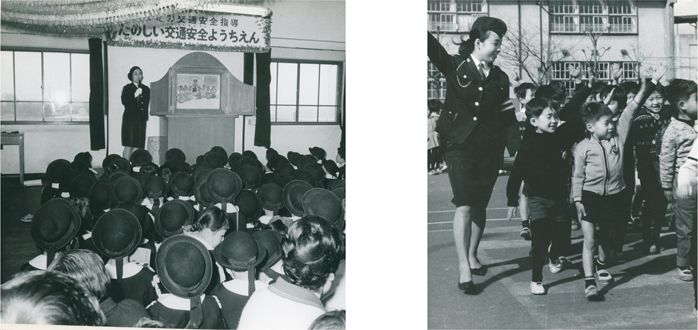 交通安全指導
たのしい交通安全ようちえん